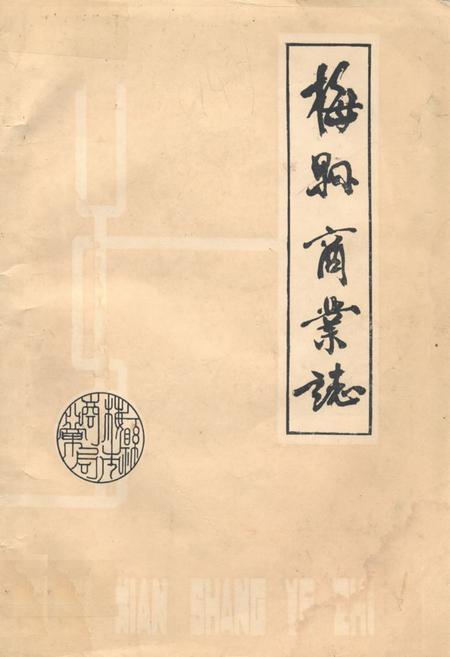 梅縣商業誌
XIAN SHANG YE ZHI